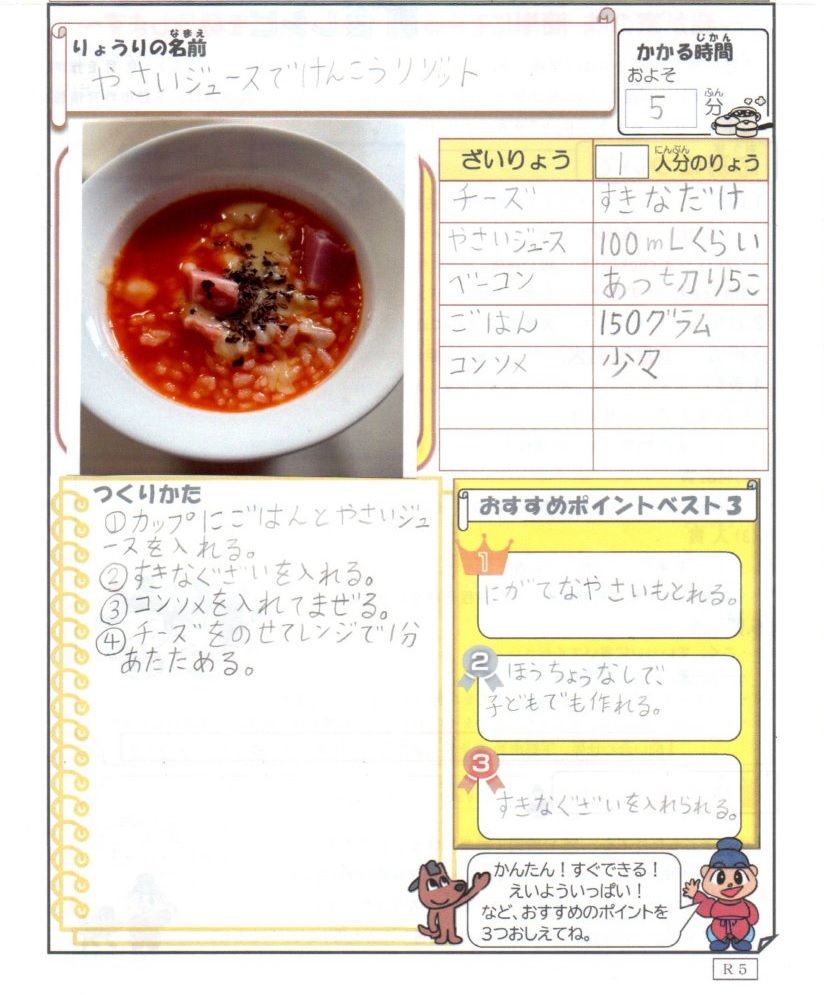 りょうりの名前
なまえ
やさいジュースでけんこうリゾット
かかる時間
じかん
およそ
5 分
ふん
ざいりょう 1 人分のりょう
にんぶん
チーズ すきなだけ
やさいジュース 100mLくらい
ベーコン あつ切り5こ
ごはん 150グラム
コンソメ 少々
つくりかた
①カップにごはんとやさいジュ
ースを入れる。
②すきなぐざいを入れる。
③コンソメを入れてまぜる。
④チーズをのせてレンジで1分
あたためる。
おすすめポイントベスト3
1
にがてなやさいもとれる。
2
ほうちょうなしで、
子どもでも作れる。
3
すきなぐざいを入れられる。
かんたん!すぐできる!
えいよういっぱい!
など、おすすめのポイントを
3つおしえてね。
R5